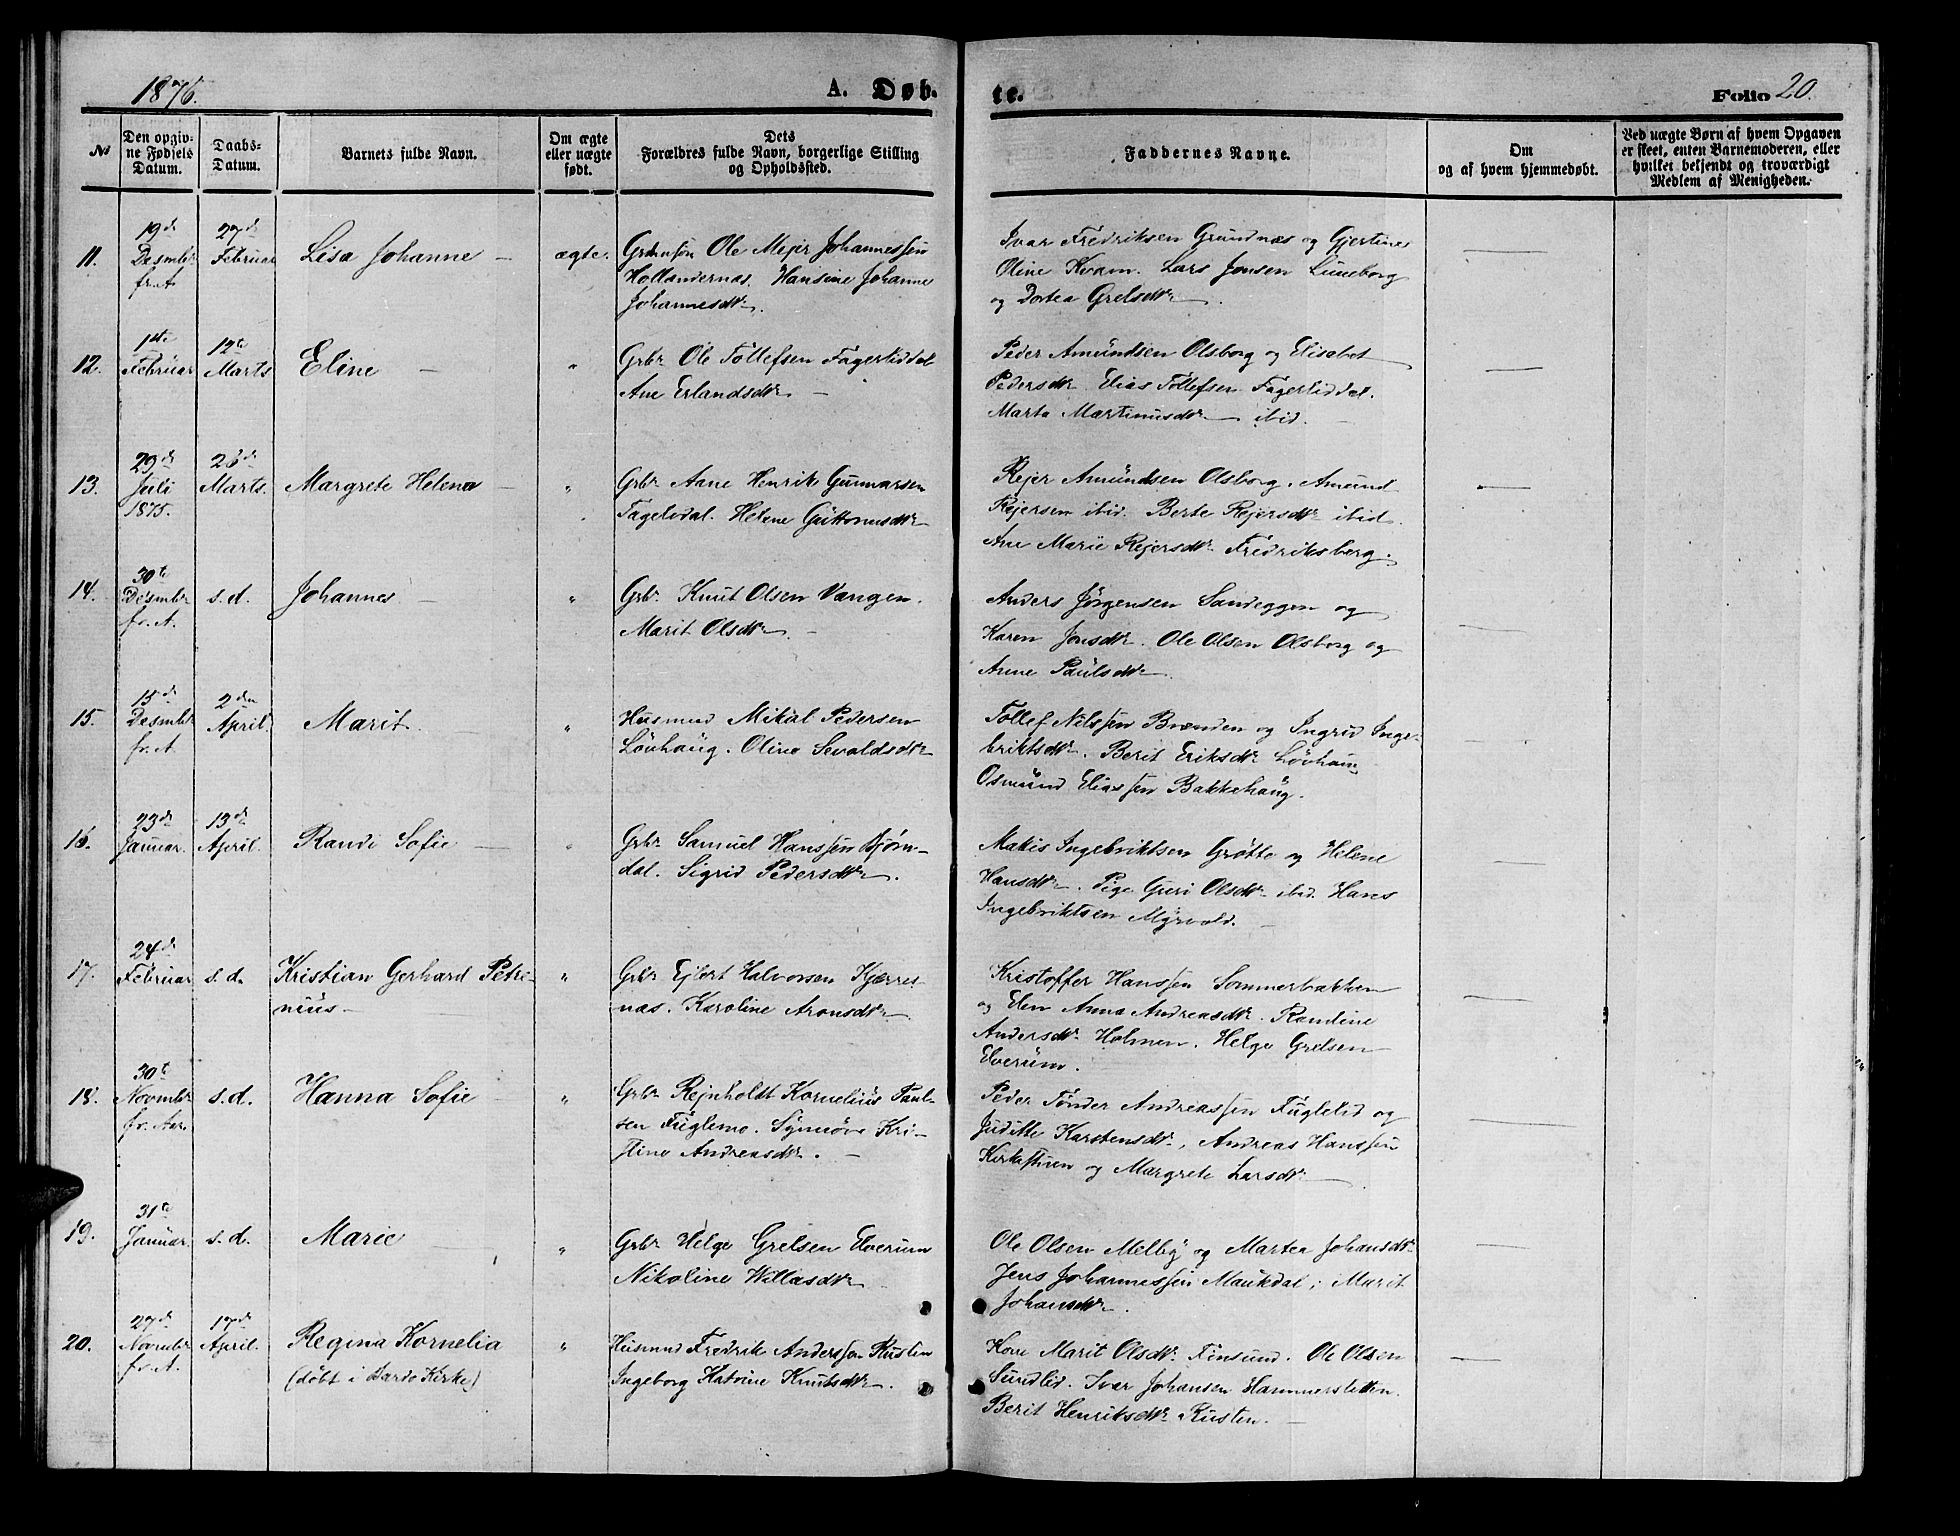 1876.
A. Døb-
te.
Folio 20.
No
Den opgiv-
ne Fødsels
Datum.
Daabs-
Datum.
Barnets fulde Navn.
Om ægte
eller uægte
født.
Dets
Forældres fulde Navn, borgerlige Stilling
og Opholdssted.
Faddernes Navne.
Om
og af hvem hjemmedøbt.
Ved uægte Børn af hvem Opgaven
er skeet, enten Barnemoderen, eller
hvilket bekjendt og troværdigt
Medlem af Menigheden.
11.
19de
Desmbr
fr. A.
27de
Februar
Lisa Johanne
ægte.
Grdmsøn Ole Mejer Johannessen
Hollandernæs. Hansine Johanne
Johannesdtr.
Ivar Fredriksen Grundnæs og Gjertine
Oline Kvam. Lars Jonsen Luneborg
og Dortea Grelsdtr.
12.
1ste
Februar
12te
Marts
Eline
"
Grbr Ole Tollefsen Fagerliddal
Ane Erlandsdtr
Peder Amundsen Olsborg og Elisabet
Pedersdtr Elias Tollefsen Fagerliddal.
Marta Martinusdtr ibid.
13.
29de
Juli
1875.
26de
Marts.
Margrete Helena
"
Grbr Aane Henrik Gunnarsen
Fagelidal. Helene Guttormsdtr
Rejer Amundsen Olsborg. Amund
Rejersen ibid. Berte Rejersdtr ibid.
Ane Marie Rejersdtr Fredriksberg.
14.
30te
Desmbr
fr. A.
s.d.
Johannes
"
Grbr Knut Olsen Vangen.
Marit Olsdtr.
Anders Jørgensen Sandeggen og
Karen Jonsdtr. Ole Olsen Olsborg og
Anne Paulsdtr
15.
15de
Desmbr
fr. A.
2den
April.
Marit.
"
Husmnd Mikal Pedersen
Løvhaug. Oline Sevaldsdtr
Tollef Nilssen Brænden og Ingrid Inge-
briktsdtr. Berit Eriksdtr Løvhaug
Osmund Eliassen Bakkehaug.
16.
23de
Januar.
13de
April.
Randi Sofie
"
Grbr Samuel Hanssen Bjørn-
dal. Sigrid Pedersdtr.
Makis Ingebriktsen Grøtte og Helene
Hansdtr. Pige Guri Olsdtr ibid. Hans
Ingebriktsen Myrvold.
17.
24de
Februar
s.d.
Kristian Gerhard Petre-
nius
"
Grbr Ejlert Halvorsen Kjerres-
næs. Karoline Aronsdtr
Kristoffer Hanssen Sommerbakken
og Elen Anna Andreasdtr. Randine
Andersdtr Holmen. Helge Grelsen
Elverum.
18.
30te
Novmbr
fr. Aar.
s.d.
Hanna Sofie
"
Grbr Rejnholdt Kornelius Paul-
sen Fuglemo. Synnøve Kri-
stine Andreasdtr.
Peder Tønder Andreassen Fuglelid og
Juditte Karstensdtr, Andreas Hanssen
Kirkestuen og Margrete Larsdtr
19.
31te
Januar.
s.d.
Marie
"
Grbr Helge Grelsen Elverum
Nikoline Willasdtr
Ole Olsen Melby og Martea Johansdtr
Jens Johannessen Maukdal, Marit
Johansdtr.
20.
27de
Novmbr
fr. A.
17de
April.
Regina Kornelia
(døbt i Bardo Kirke)
"
Husmnd Fredrik Anderssen Rusten
Ingeborg Katrine Knutsdtr.
Kone Marit Olsdtr Finsund. Ole Olsen
Sundlid. Ivar Johansen Hammersletten.
Berit Henriksdtr Rusten.